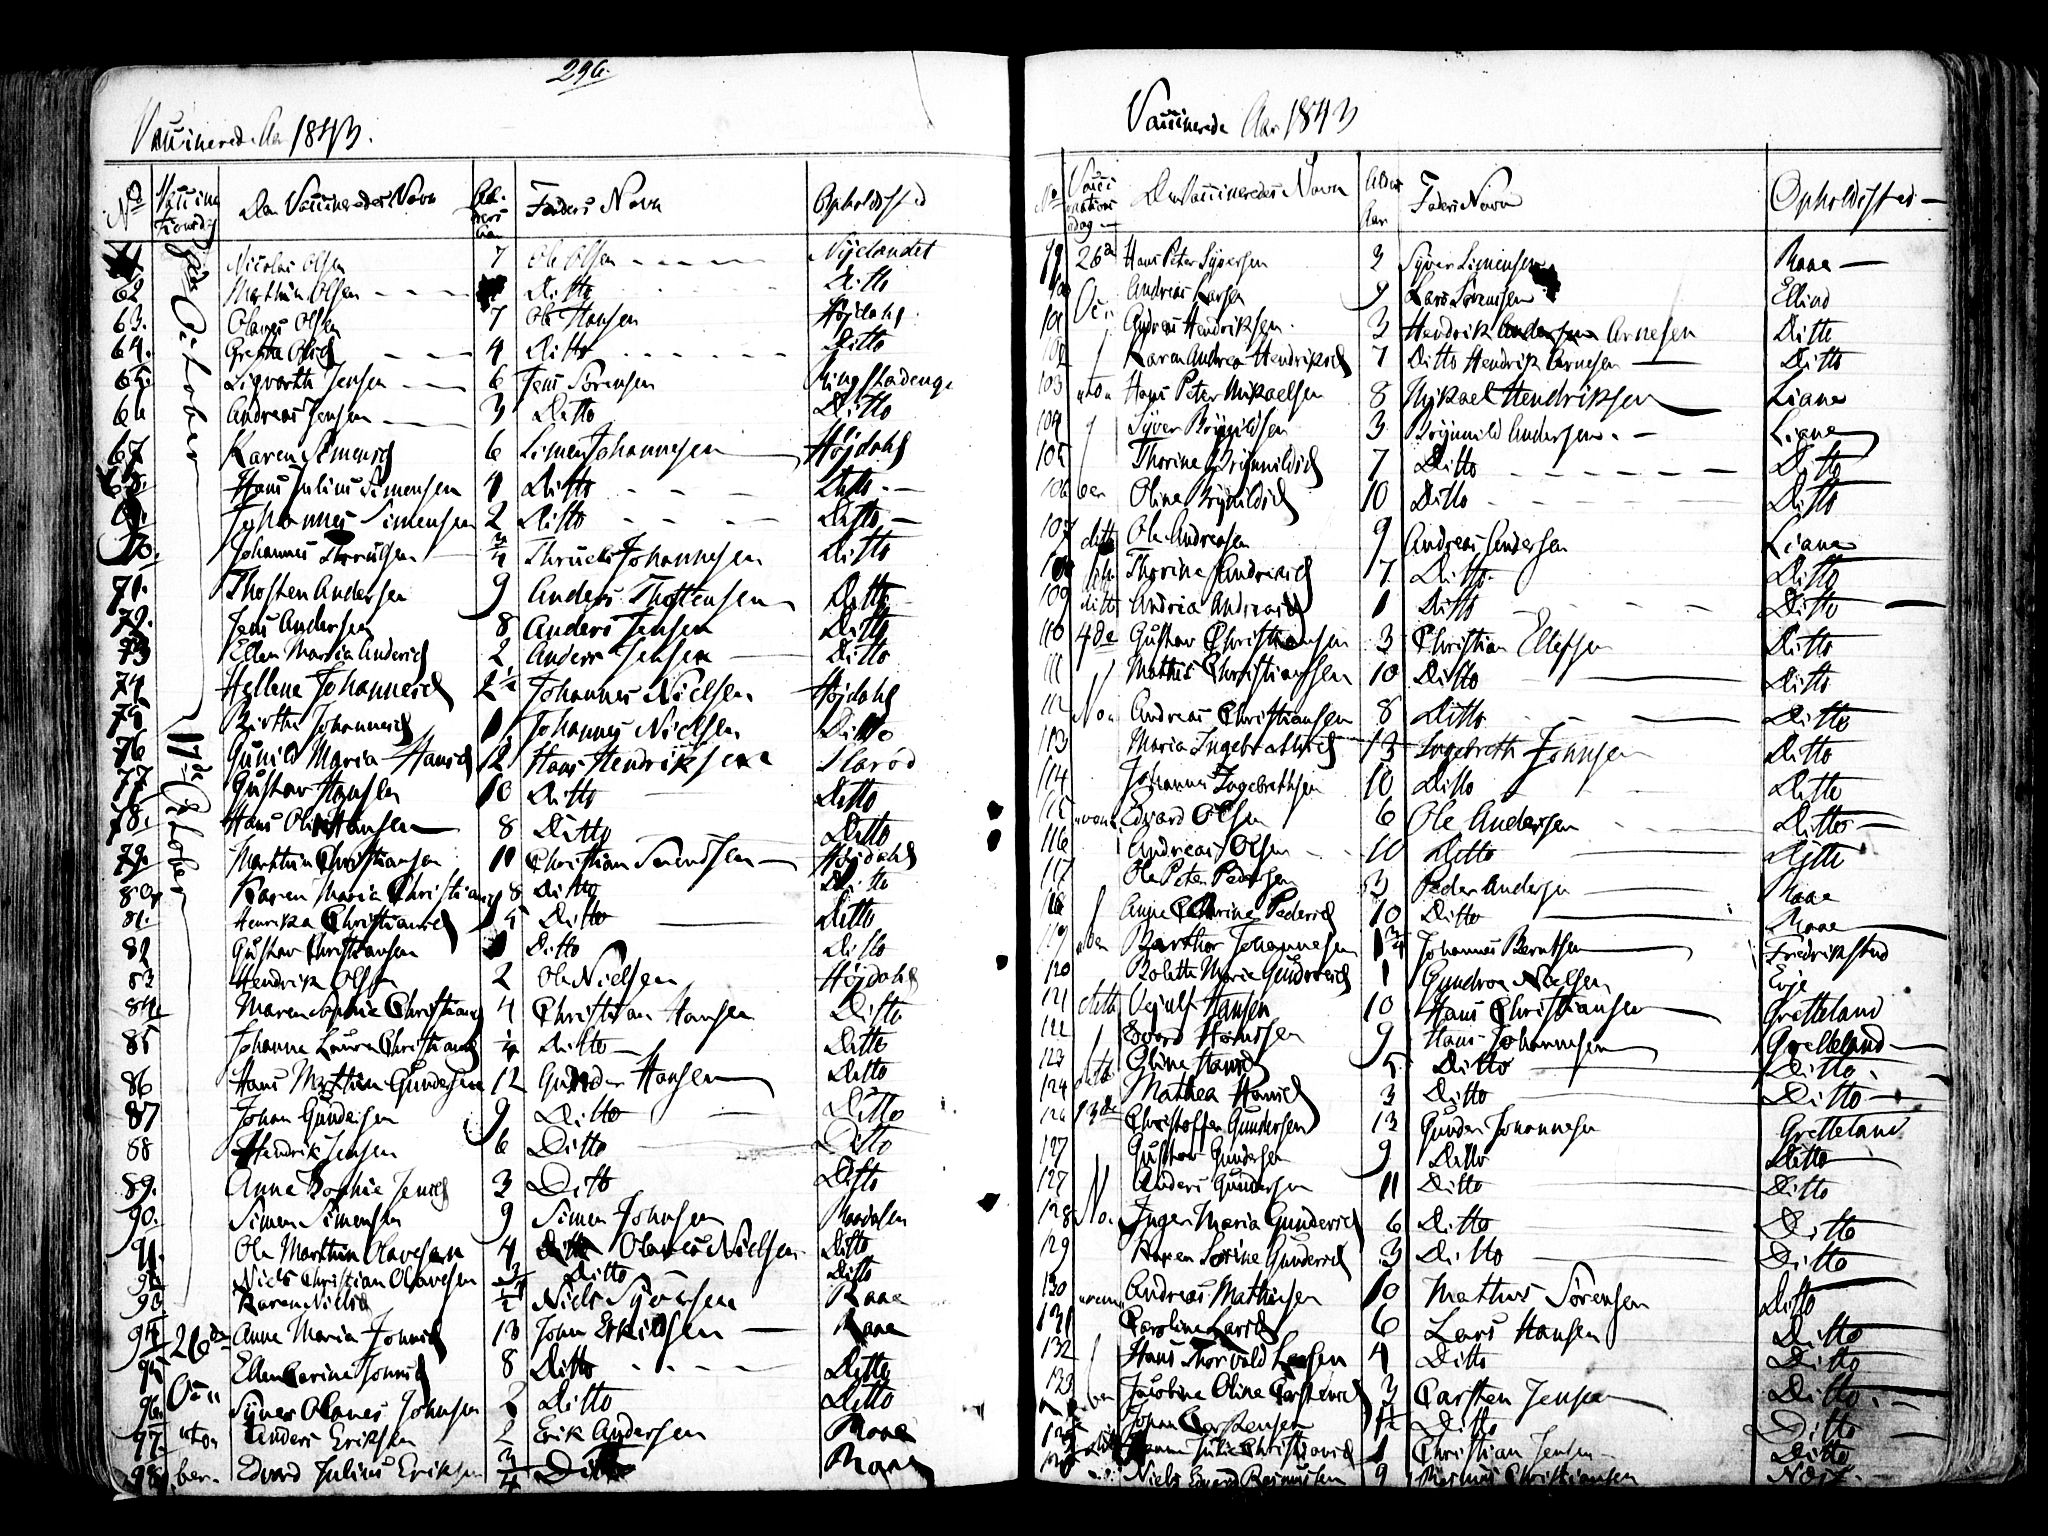 296.
Vaccinerede Aar 1843.
No Vaccina tionsdag Den Vaccineredes Navn Alders Aar Faders Navn Opholdssted
Nicolai Olsen 7 Ole Olsen Nyelandet
62 Marthin Olsen Ditto Ditto
63. Olaves Olsen 7 Ole Hansen Højdahl
64. Grethe Olsd 4 Ditto Ditto
65. Sigvarth Jensen 6 Jens Sørensen Ringstadenge
66 Andreas Jensen 3 Ditto Ditto
67 Karen Simensd 6 Simen Johannesen Højdahl
68. Hans Julius Simensen 4 Ditto Ditto
69. Johannes Simensen 2 Ditto Ditto
70. Johannes Thruelsen 3/4 Thruels Johannesen Ditto
October
71. Thosten Andersen 9 Anders Thostensen Ditto
72. Jens Andersen 8 Anders Jensen Ditto
73 Ellen Maria Andersd 2 Anders Jensen Ditto
74 Hellene Johannesd 2 1/2 Johannes Nielsen Højdahl
75 Birthe Johannesd 1 Johannes Nielsen Ditto
76 Gunild Maria Hansd 12 Hans Hendriksen Slarød
77 Gustav Hansen 10 Ditto Ditto
78. Hans Olis Hansen 8 Ditto Ditto
79. Marthin Christiansen 11 Christian Svendsen Højdahl
17de October
80. Karen Maria Christiansd 8 Ditto Ditto
81. Henrika Christiansd 5 Ditto Ditto
82 Gustav Christiansen 1 Ditto Ditto
83 Hendrik Olsen 2 Ole Nielsen Højdahl
84. Maren Sophie Christiansd 4 Christian Hansen Ditto
85 Johanne Laura Christiansd 1/4 Ditto Ditto
86 Hans Mathias Gundersen 12 Gunder Hansen Ditto
87 Johan Gundersen 9 Ditto Ditto
88 Hendrik Jensen 6 Ditto Ditto
89. Anne Sophie Jensd 3 Ditto Ditto
90. Simen Simensen 9 Simen Johnsen
91. Ole Marthin Olavesen 4 Olaves Nielsen Ditto
92 Niels Christian Olavesen 3/4 Ditto Ditto
93. Karen Nielsd 1/2 Niels Syversen Raae
94 26de Anne Maria Johnsd 13 John Erkildsen Raae
95 Ellen Carine Johnsd 8 Ditto Ditto
96. Oc Syver Olaves Johnsen 2 Ditto Ditto
97. to Anders Eriksen 2 Erik Andersen Raae
98. ber. Edvard Julius Eriksen 3/4 Ditto Raae
Vaccinerede Aar 1843
No Vacci nations dag Den Vaccineredes Navn Alders Aar Faders Navn Opholdssted
99 26de Hans Peter Syversen 3 Syver Simensen Raae
100 Oc Andreas Larsen 9 Lars Sørensen Ellind
101 Andreas Hendriksen 3 Hendrik Arnesen Ditto
102 Karen Andrea Hendriksd 7 Ditto Hendrik Arnesen Ditto
103 to Hans Peter Mikaelsen 8 Mikael Hendriksen Liane
104 Syver Brynildsen 3 Brynnild Andersen Liane
105 Thorine Brynnildsd 7 Ditto Ditto
106 ber Oline Brynildsd 10 Ditto Ditto
107 ditto Ole Andreasen 9 Andreas Andersen Liane
108 Thorine Andreasd 7 Ditto Ditto
109 ditto Andria Andreasd 1 Ditto Ditto
110 4de Gustav Christiansen 3 Christian Ellefsen Ditto
111 Mathis Christiansen 10 Ditto Ditto
112 No Andreas Christiansen 8 Ditto Ditto
113 Maria Ingebrethsd 13 Ingebreth Johnsen Ditto
114 Johannes Ingebrethsen 10 Ditto Ditto
115 Edvard Olsen 6 Ole Andersen Ditto
116 Andreas Olsen 10 Ditto Ditto
117 Ole Peter Pedersen 3 Peder Andersen Raae
118 Anne Cathrine Pedersd 10 Ditto Raae
119 ber Barthor Johannesen 1 3/4 Johannes Berntsen Fredrikstad
120 Bolette Marie Gundrosd 1 Gundro Nielsen Evje
121 ditto Hansen 10 Hans Christiansen Gretteland
122 Edvard Hanssen 9 Hans Johannesen Gretteland
123 Eline Hansd 5 Ditto Ditto
124 ditto Mathea Hansd 3 Ditto Ditto
126 13de Christoffer Gundersen 13 Gunder Johannesen Gretteland
127 Gustav Gundersen 9 Ditto Ditto
127 Anders Gundersen 11 Ditto Ditto
128 No Inger Maria Gundersd 6 Ditto Ditto
129 Karen Sorine Gundersd 3 Ditto Ditto
130 Andreas Mathisen 10 Mathis Sørensen Ditto
131 Caroline Larsd 6 Lars Hansen Ditto
132 Hans Thorvald Larsen 4 Ditto Ditto
133 ber Jacobine Oline Carstensd 3 Carsten Jensen Ditto
Johan Carstensen 1 1/2 Ditto Ditto
Julie Christiansd 1 Christian Jensen Ditto
Niels Edvard Rasmussen 9 Rasmus Christiansen